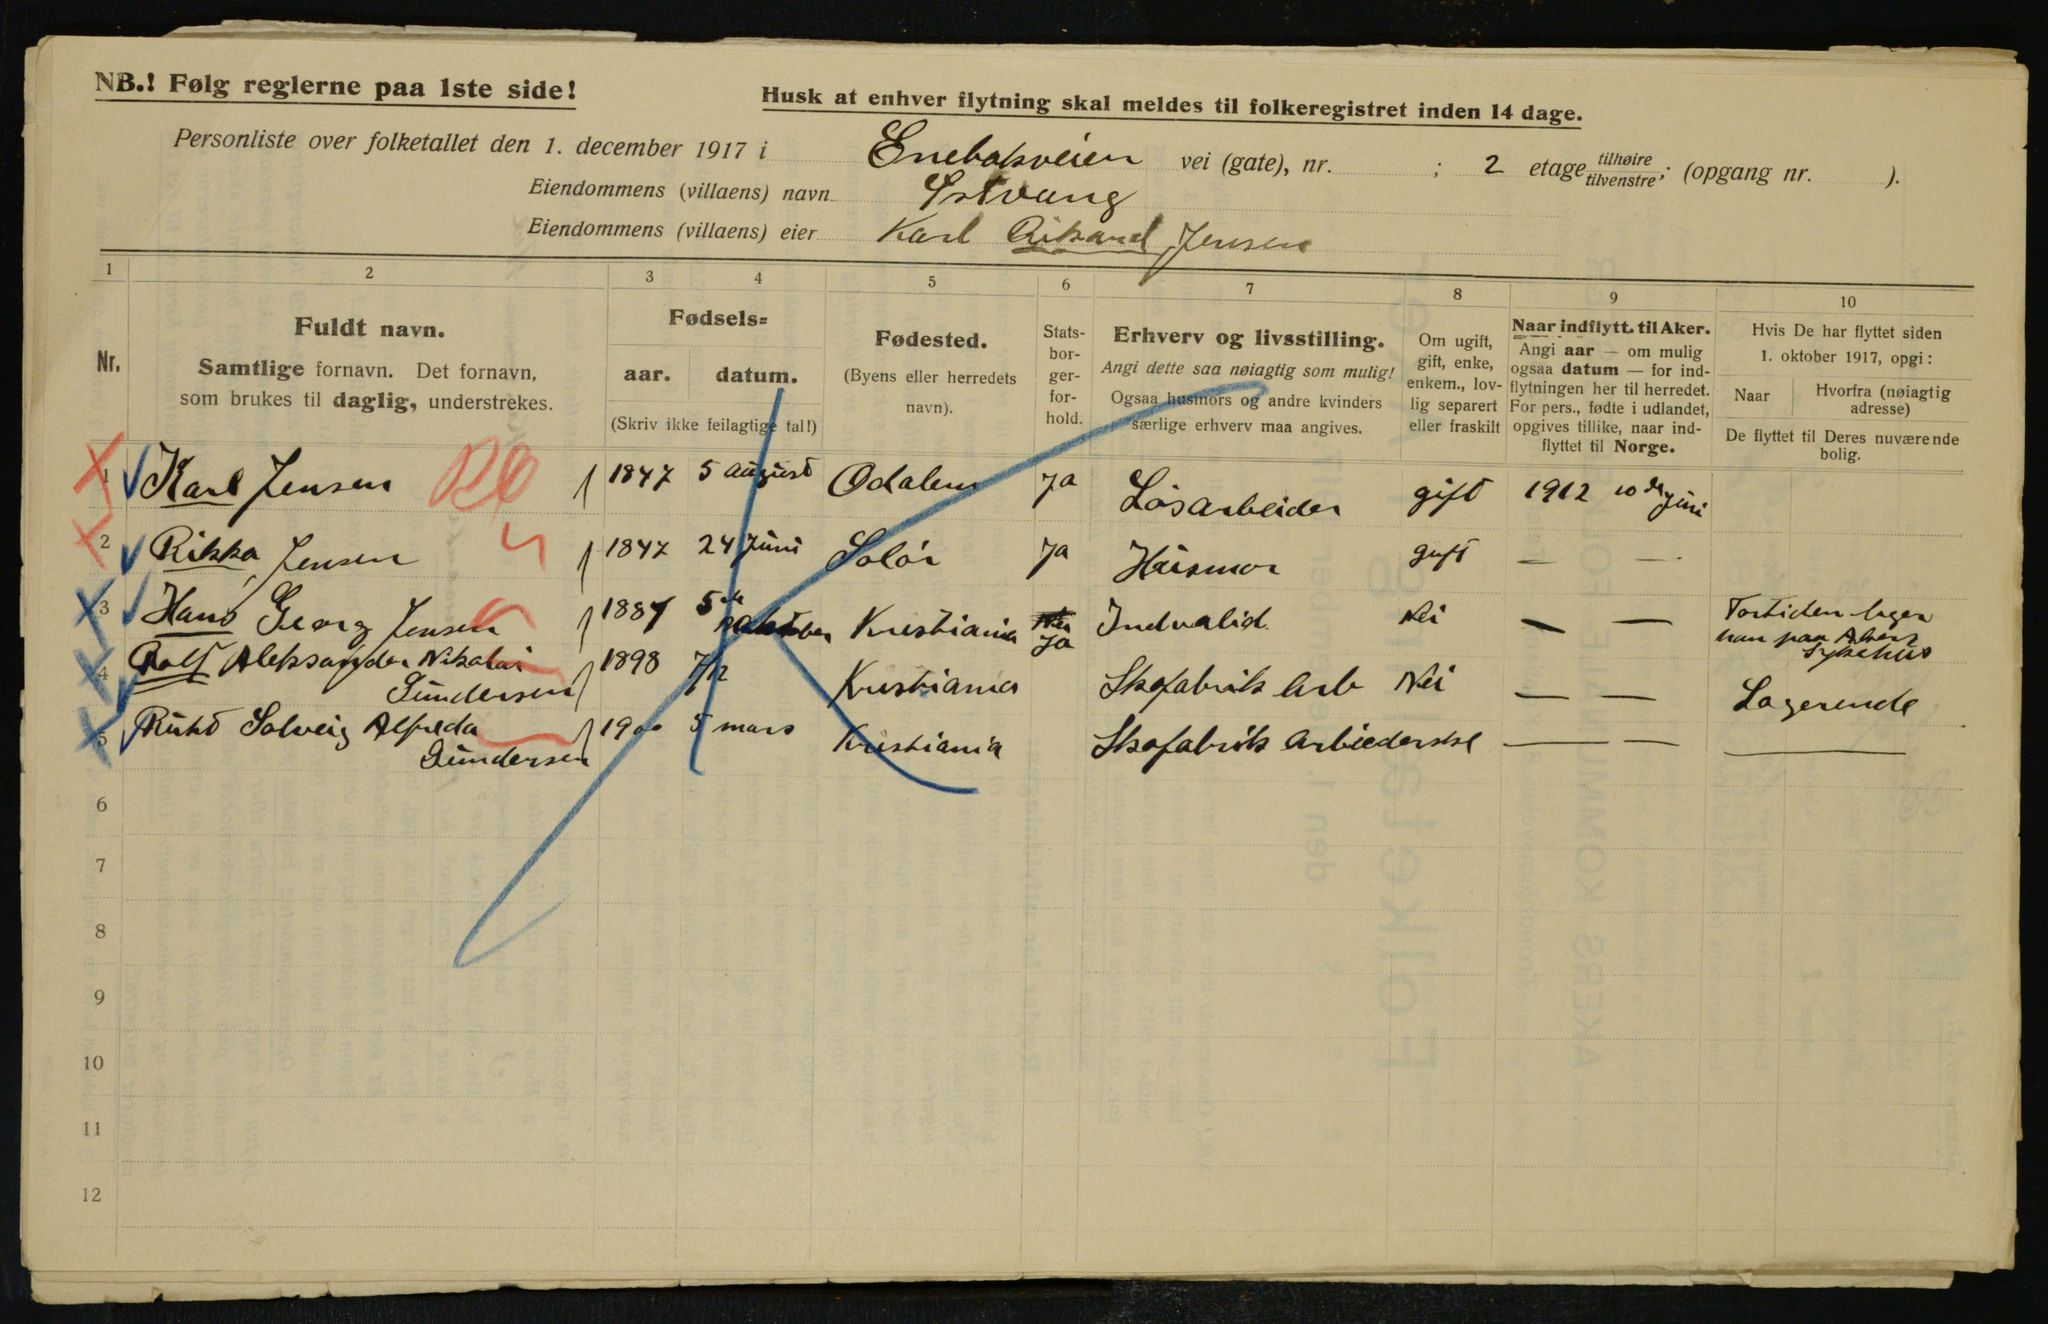 NB.! Følg reglerne paa 1ste side!
Husk at enhver flytning skal meldes til folkeregistret inden 14 dage.
Personliste over folketallet den 1. december 1917 i Enebakveien vei (gate), nr. ; 2 etage tilhøire tilvenstre; (opgang nr. ).
Eiendommens (villaens) navn
Eiendommens (villaens) eier Karl Rikard Jensen
1 2 3 4 5 6 7 8 9 10
Nr.
Fuldt navn.
Samtlige fornavn. Det fornavn,
som brukes til daglig, understrekes.
Fødsels=
aar. datum.
(Skriv ikke feilagtige tal!)
Fødested.
(Byens eller herredets
navn).
Stats-
bor-
ger-
for-
hold.
Erhverv og livsstilling.
Angi dette saa nøiagtig som mulig!
Ogsaa husmors og andre kvinders
særlige erhverv maa angives.
Om ugift,
gift, enke,
enkem., lov-
lig separert
eller fraskilt
Naar indflytt. til Aker.
Angi aar — om mulig
ogsaa datum — for ind-
flytningen her til herredet.
For pers., fødte i udlandet,
opgives tillike, naar ind-
flyttet til Norge.
Hvis De har flyttet siden
1. oktober 1917, opgi:
Naar Hvorfra (nøiagtig
adresse)
De flyttet til Deres nuværende
bolig.
1 Karl Jensen 1847 5 august Odalen Ja Løsarbeider gift 1912 10 de Juni
2 Rikka Jensen 1847 24 Juni Solør Ja Husmor gift — —
3 Hans Georg Jensen 1887 5 te oktober Kristiania Nei Ja Indvalid Nei — — Fortiden liger
han paa Akers
Sykehus
4 Rolf Aleksander Nikolai
Gundersen 1898 7/12 Kristiania Skofabrik Arb Nei — — Logerende
5 Ruht Solveig Alfreda
Gundersen 1900 5 mars Kristiania Skofabrik Arbiederske — — —
6
7
8
9
10
11
12